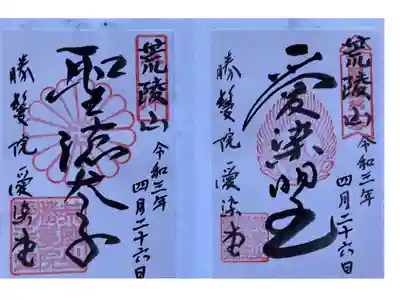 荒陵山
令和三年
四月二十六日
聖徳太子
勝鬘院愛染堂
荒陵山
令和三年
四月二十六日
愛染明王
勝鬘院愛染堂